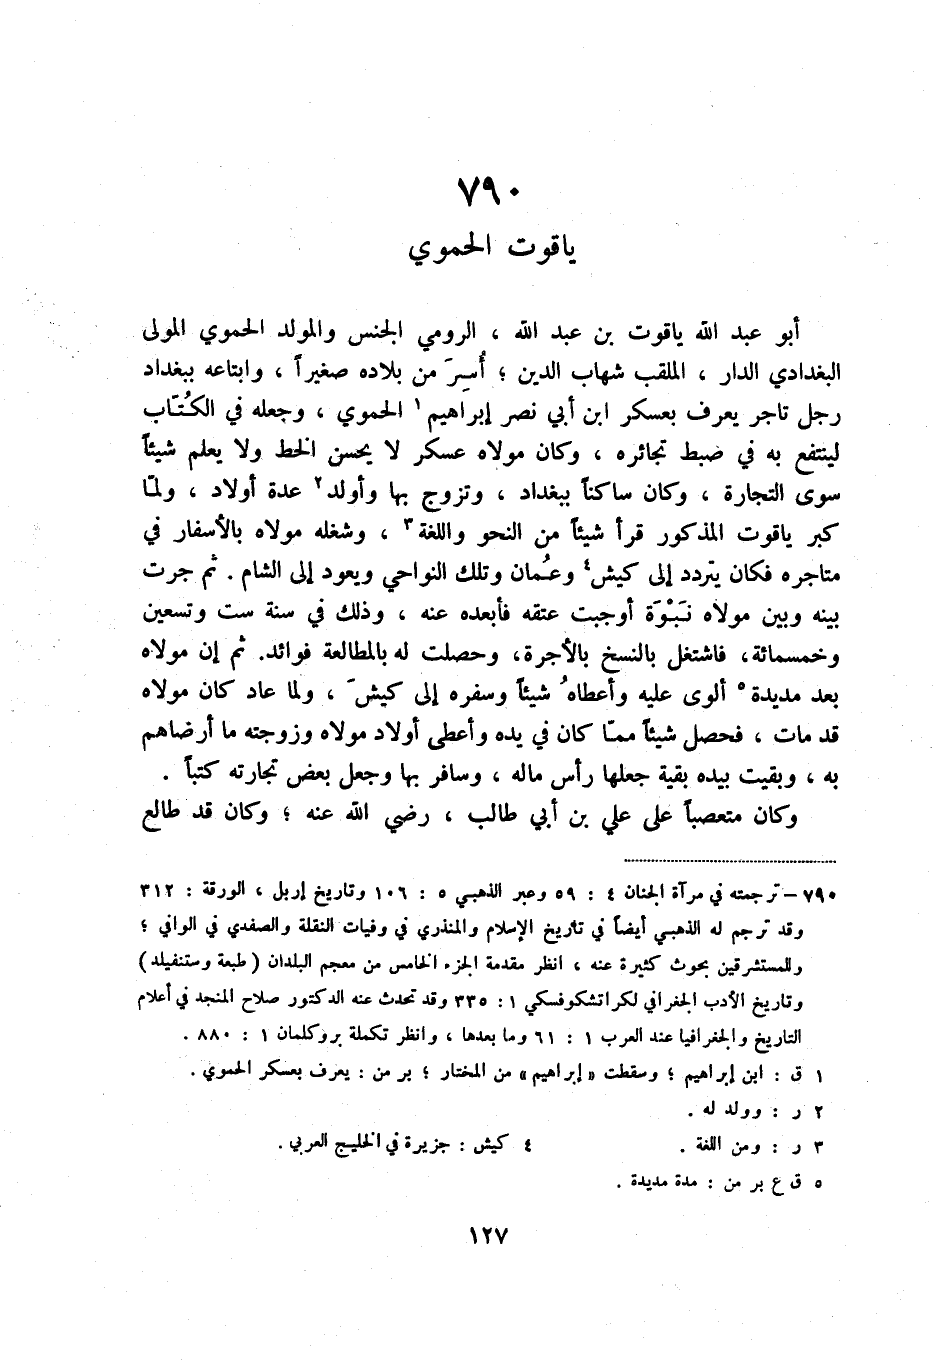 ٧٩٠
ياقوت الحموي
أبو عبد الله ياقوت بن عبد الله ، الرومي الجنس والمولد الحموي المولى
البغدادي الدار ، الملقب شهاب الدين ؛ أُسِرَ من بلاده صغيراً ، وابتاعه ببغداد
رجل تاجر يعرف بعسكر ابن أبي نصر إبراهيم١ الحموي ، وجعله في الكُتّاب
لينتفع به في ضبط تجائره ، وكان مولاه عسكر لا يحسن الخط ولا يعلم شيئاً
سوى التجارة ، وكان ساكناً ببغداد ، وتزوج بها وأولد٢ عدة أولاد ، ولمّا
كبر ياقوت المذكور قرأ شيئاً من النحو واللغة٣ ، وشغله مولاه بالأسفار في
متاجره فكان يتردد إلى كيش٤ وعُمان وتلك النواحي ويعود إلى الشام . ثم جرت
بينه وبين مولاه نَبْوَة أوجبت عتقه فأبعده عنه ، وذلك في سنة ست وتسعين
وخمسمائة، فاشتغل بالنسخ بالأجرة، وحصلت له بالمطالعة فوائد. ثم إن مولاه
بعد مديدة٥ ألوى عليه وأعطاهُ شيئاً وسفره إلى كيشَ ، ولما عاد كان مولاه
قد مات ، فحصل شيئاً ممّا كان في يده وأعطى أولاد مولاه وزوجته ما أرضاهم
به ، وبقيت بيده بقية جعلها رأس ماله ، وسافر بها وجعل بعض تجارته كتباً .
وكان متعصباً على علي بن أبي طالب ، رضي الله عنه ؛ وكان قد طالع
٧٩٠ – ترجمته في مرآة الجنان ٤ : ٥٩ وعبر الذهبي ٥ : ١٠٦ وتاريخ إربل ، الورقة : ٣١٢
وقد ترجم له الذهبي أيضاً في تاريخ الإسلام والمنذري في وفيات النقلة والصفدي في الوافي ؛
وللمستشرقين بحوث كثيرة عنه ، انظر مقدمة الجزء الخامس من معجم البلدان (طبعة وستنفيلد)
وتاريخ الأدب الجغرافي لكراتشكوفسكي ١ : ٣٣٥ وقد تحدث عنه الدكتور صلاح المنجد في أعلام
التاريخ والجغرافيا عند العرب ١ : ٦١ وما بعدها ، وانظر تكملة بروكلمان ١ : ٨٨٠ .
١ ق : ابن إبراهيم ؛ وسقطت «إبراهيم» من المختار ؛ بر من : يعرف بعسكر الحموي .
٢ ر : وولد له .
٣ ر : ومن اللغة . ٤ كيش : جزيرة في الخليج العربي .
٥ ق ع بر من : مدة مديدة .
١٢٧